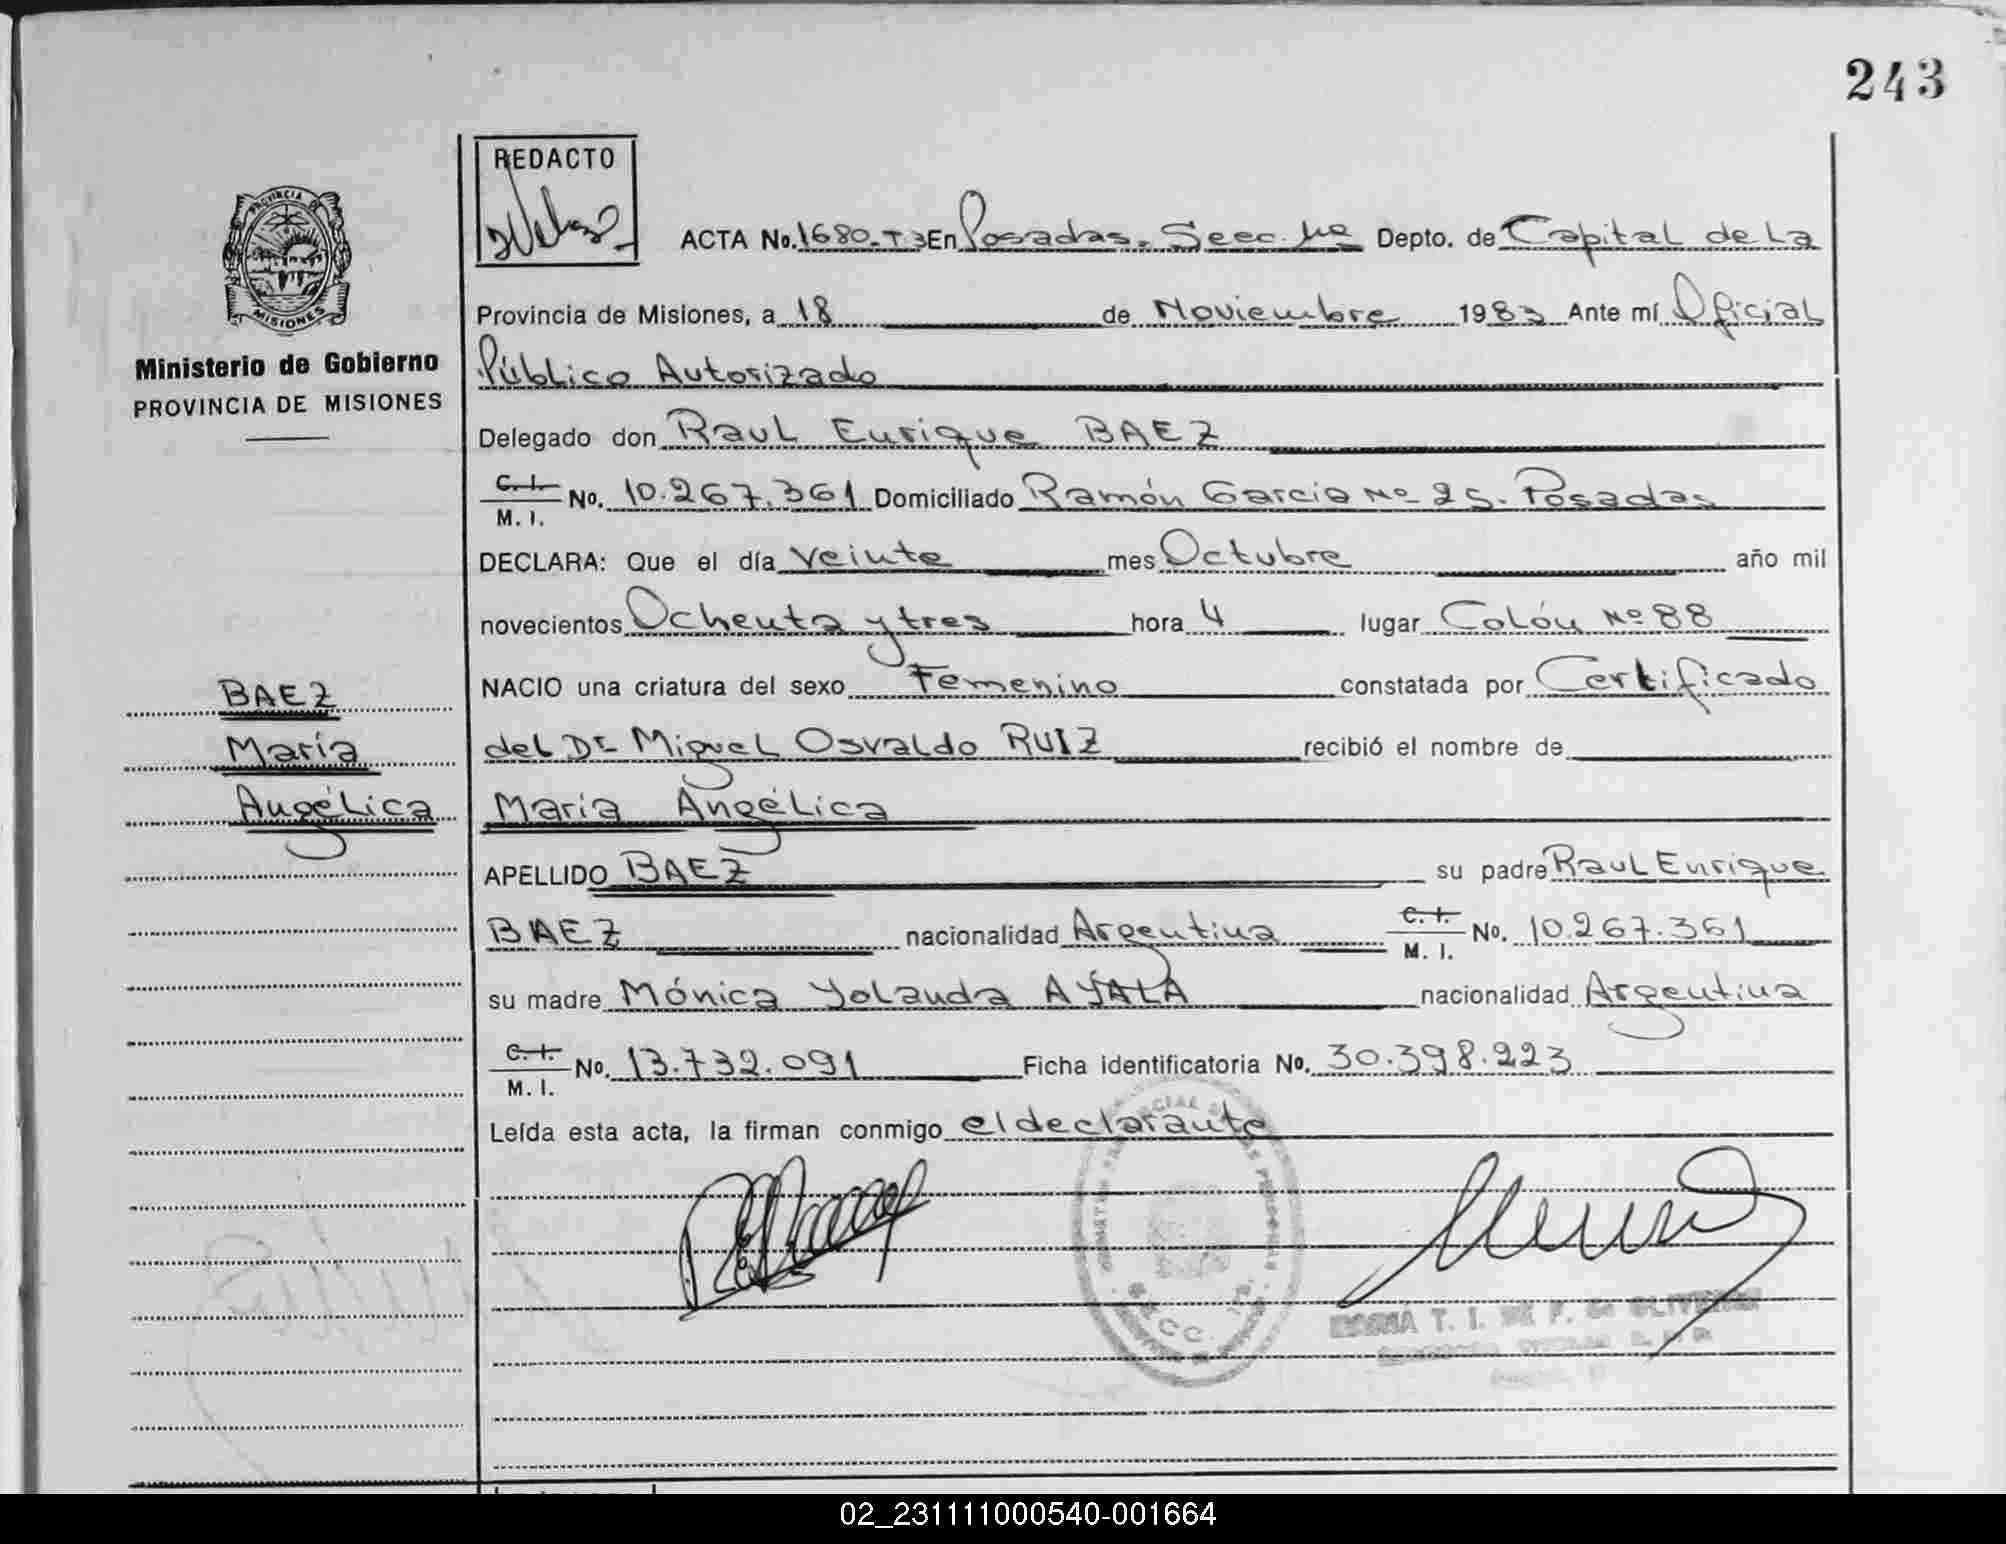 243
REDACTO
PROVINCIA DE
MISIONES
Ministerio de Gobierno
PROVINCIA DE MISIONES
ACTA No. 1680-T3 En Posadas. Secc. 1ra Depto. de Capital de La
Provincia de Misiones, a 18 de Noviembre 1983 Ante mí Oficial
Público Autorizado
Delegado don Raul Enrique BAEZ
C. I. M. I. No. 10.267.361 Domiciliado Ramón Garcia Nº 25. Posadas
DECLARA: Que el día veinte mes Octubre año mil
novecientos Ochenta y tres hora 4 lugar Colón Nº 88
NACIO una criatura del sexo Femenino constatada por Certificado
del Dr Miguel Osvaldo RUIZ recibió el nombre de
María Angélica
APELLIDO BAEZ su padre Raul Enrique
BAEZ nacionalidad Argentina C. I. M. I. No. 10.267.361
su madre Mónica Yolanda AYALA nacionalidad Argentina
C. I. M. I. No. 13.732.091 Ficha identificatoria No. 30.398.223
Leída esta acta, la firman conmigo el declarante
BAEZ
María
Angélica
T. I. DE P. de OLIVEIRA
02_231111000540-001664